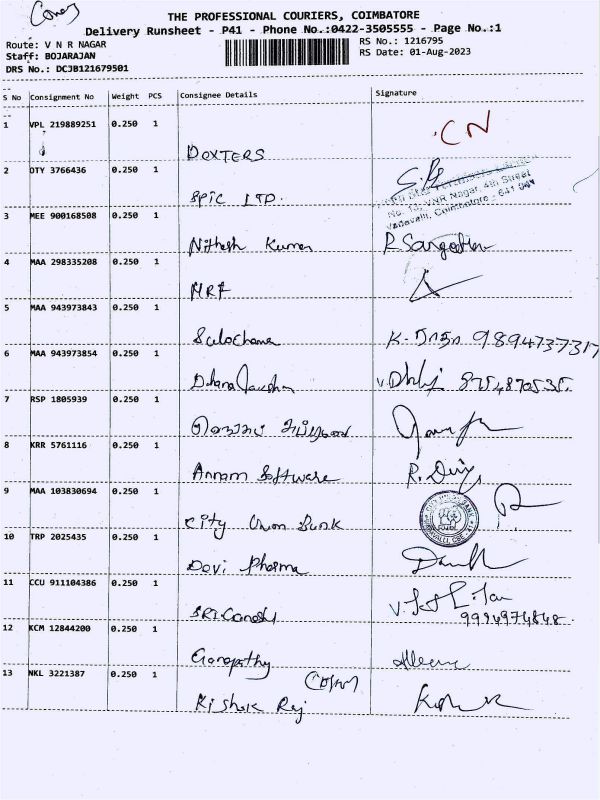 THE PROFESSIONAL COURIERS, COIMBATORE
Delivery Runsheet - P41 - Phone No.:0422-3505555 - Page No.:1
Route: V N R NAGAR
RS No.: 1216795
Staff: BOJARAJAN
RS Date: 01-Aug-2023
DRS No.: DCJB121679501
S No Consignment No Weight PCS Consignee Details Signature
1 VPL 219889251 0.250 1
CN
DEXTERS
2 OTY 3766436 0.250 1
SPIC LTD.
No. 13, VNR Nagar, 4th Street
Vadavalli, Coimbatore - 641 041
3 MEE 900168508 0.250 1
Nithesh Kumar
4 MAA 298335208 0.250 1
MRF
5 MAA 943973843 0.250 1
Sulochana K. 9894737317
6 MAA 943973854 0.250 1
8754870535.
7 RSP 1805939 0.250 1
8 KRR 5761116 0.250 1
Annam Software R.
9 MAA 103830694 0.250 1
City Union Bank
10 TRP 2025435 0.250 1
Devi Pharma
11 CCU 911104386 0.250 1
SRI Ganesh
9994974848
12 KCM 12844200 0.250 1
Ganapathy
13 NKL 3221387 0.250 1
Kishok Raj